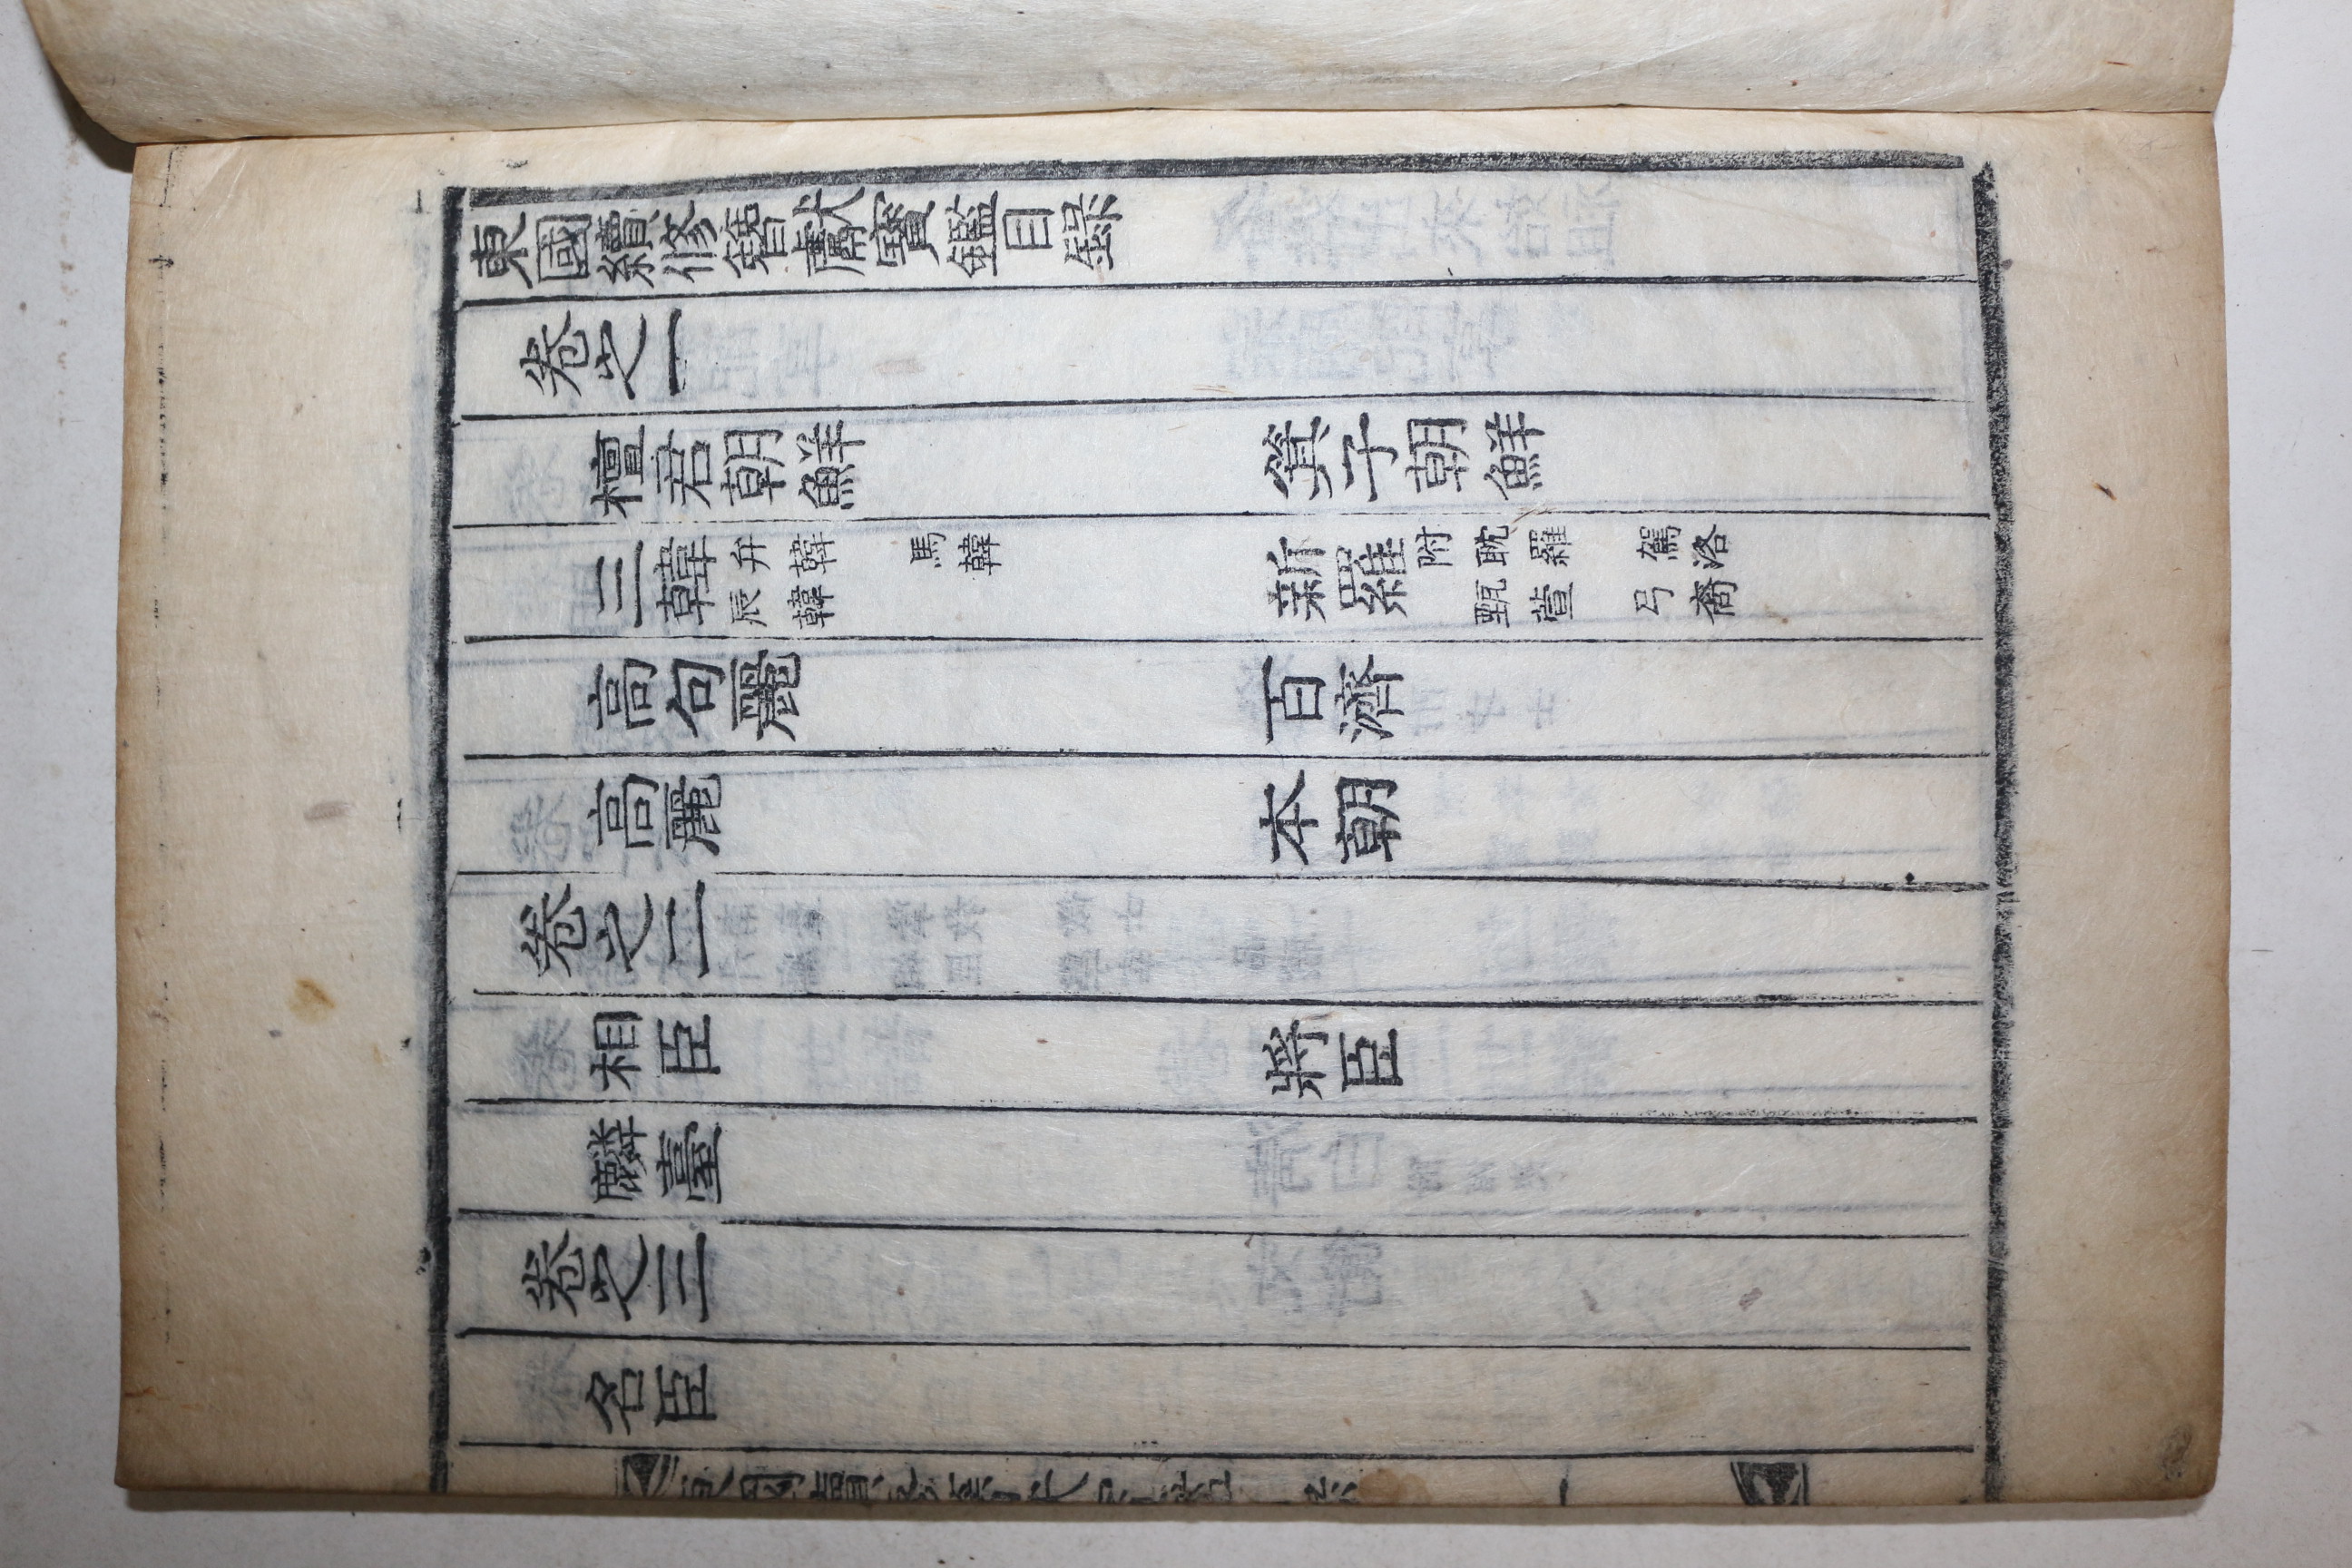 東國續修簪獻寶鑑目錄
卷之一
檀君朝鮮 箕子朝鮮
三韓 弁韓 馬韓 辰韓 新羅 附耽羅 駕洛 甄萱 弓裔
高句麗 百濟
高麗 本朝
卷之二
相臣 將臣
麟臺
卷之三
名臣